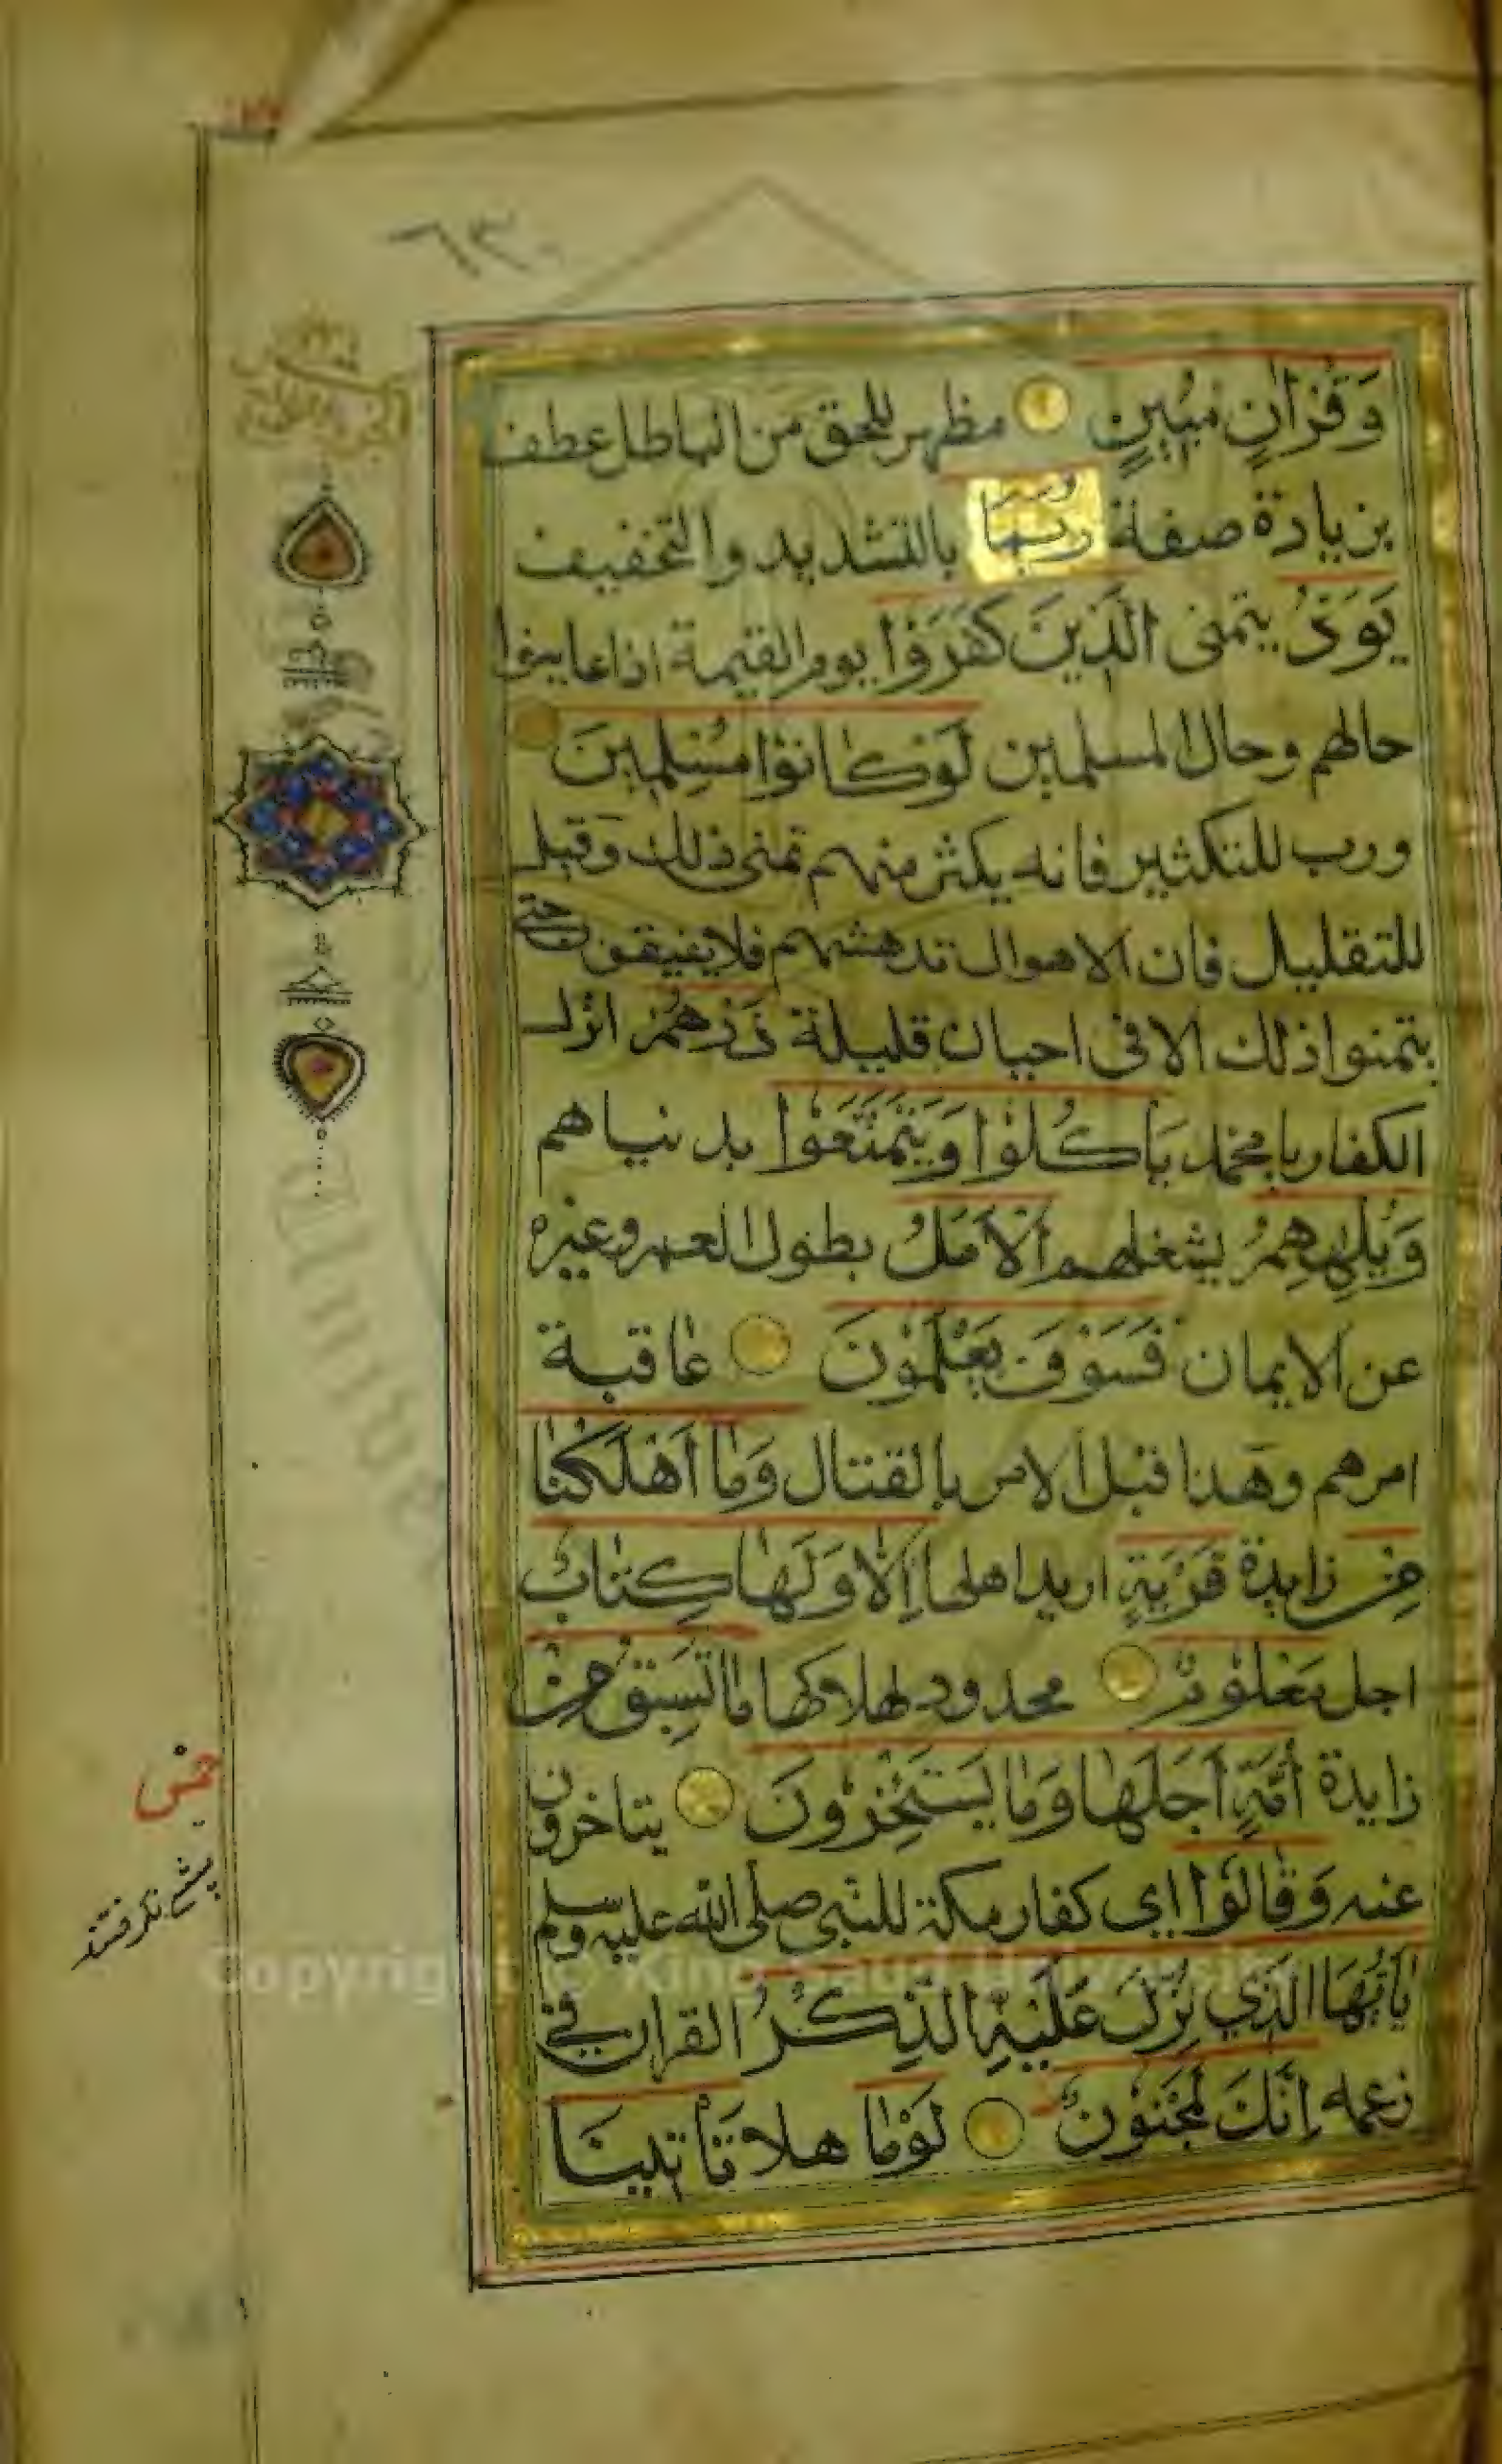 ٦٣٠
وَقُرْاٰنٍ مُبِينٍ مظهر للحق من الباطل عطف
بزيادة صفة رُبَمَا بالتشديد والتخفيف
يَوَدُّ يتمنى الَّذِينَ كَفَرُوْا يوم القيمة اذا عاينوا
حالهم وحال المسلمين لَوْ كَانُوْا مُسْلِمِينَ
ورب للتكثير فانه يكثر منهم تمنى ذلك وقيل
للتقليل فان الاهوال تدهشهم فلا يفيقون حتى
يتمنوا ذلك الا فى احيان قليلة ذَرْهُمْ اترك
الكفار يا محمد يَاْكُلُوْا وَيَتَمَتَّعُوْا بدنياهم
وَيُلْهِهِمُ يشغلهم الْاَمَلُ بطول العمر وغيره
عن الايمان فَسَوْفَ يَعْلَمُوْنَ عاقبة
امرهم وهذا قبل الامر بالقتال وَمَا اَهْلَكْنَا
مِنْ زايدة قَرْيَةٍ اريد اهلها اِلَّا وَلَهَا كِتَابٌ
اجل مَعْلُوْمٌ محدود لهلاكها مَا تَسْبِقُ مِنْ
زايدة اُمَّةٍ اَجَلَهَا وَمَا يَسْتَخِرُوْنَ يتاخرون
عنه وَقَالُوْا اى كفار مكة للنبى صلى الله عليه وسلم
يٰاَيُّهَا الَّذِي نُزِّلَ عَلَيْهِ الذِّكْرُ القران فى
زعمه اِنَّكَ لَمَجْنُوْنٌ لَوْمَا هلا تَأْتِينَا
Copyright © King Saud University